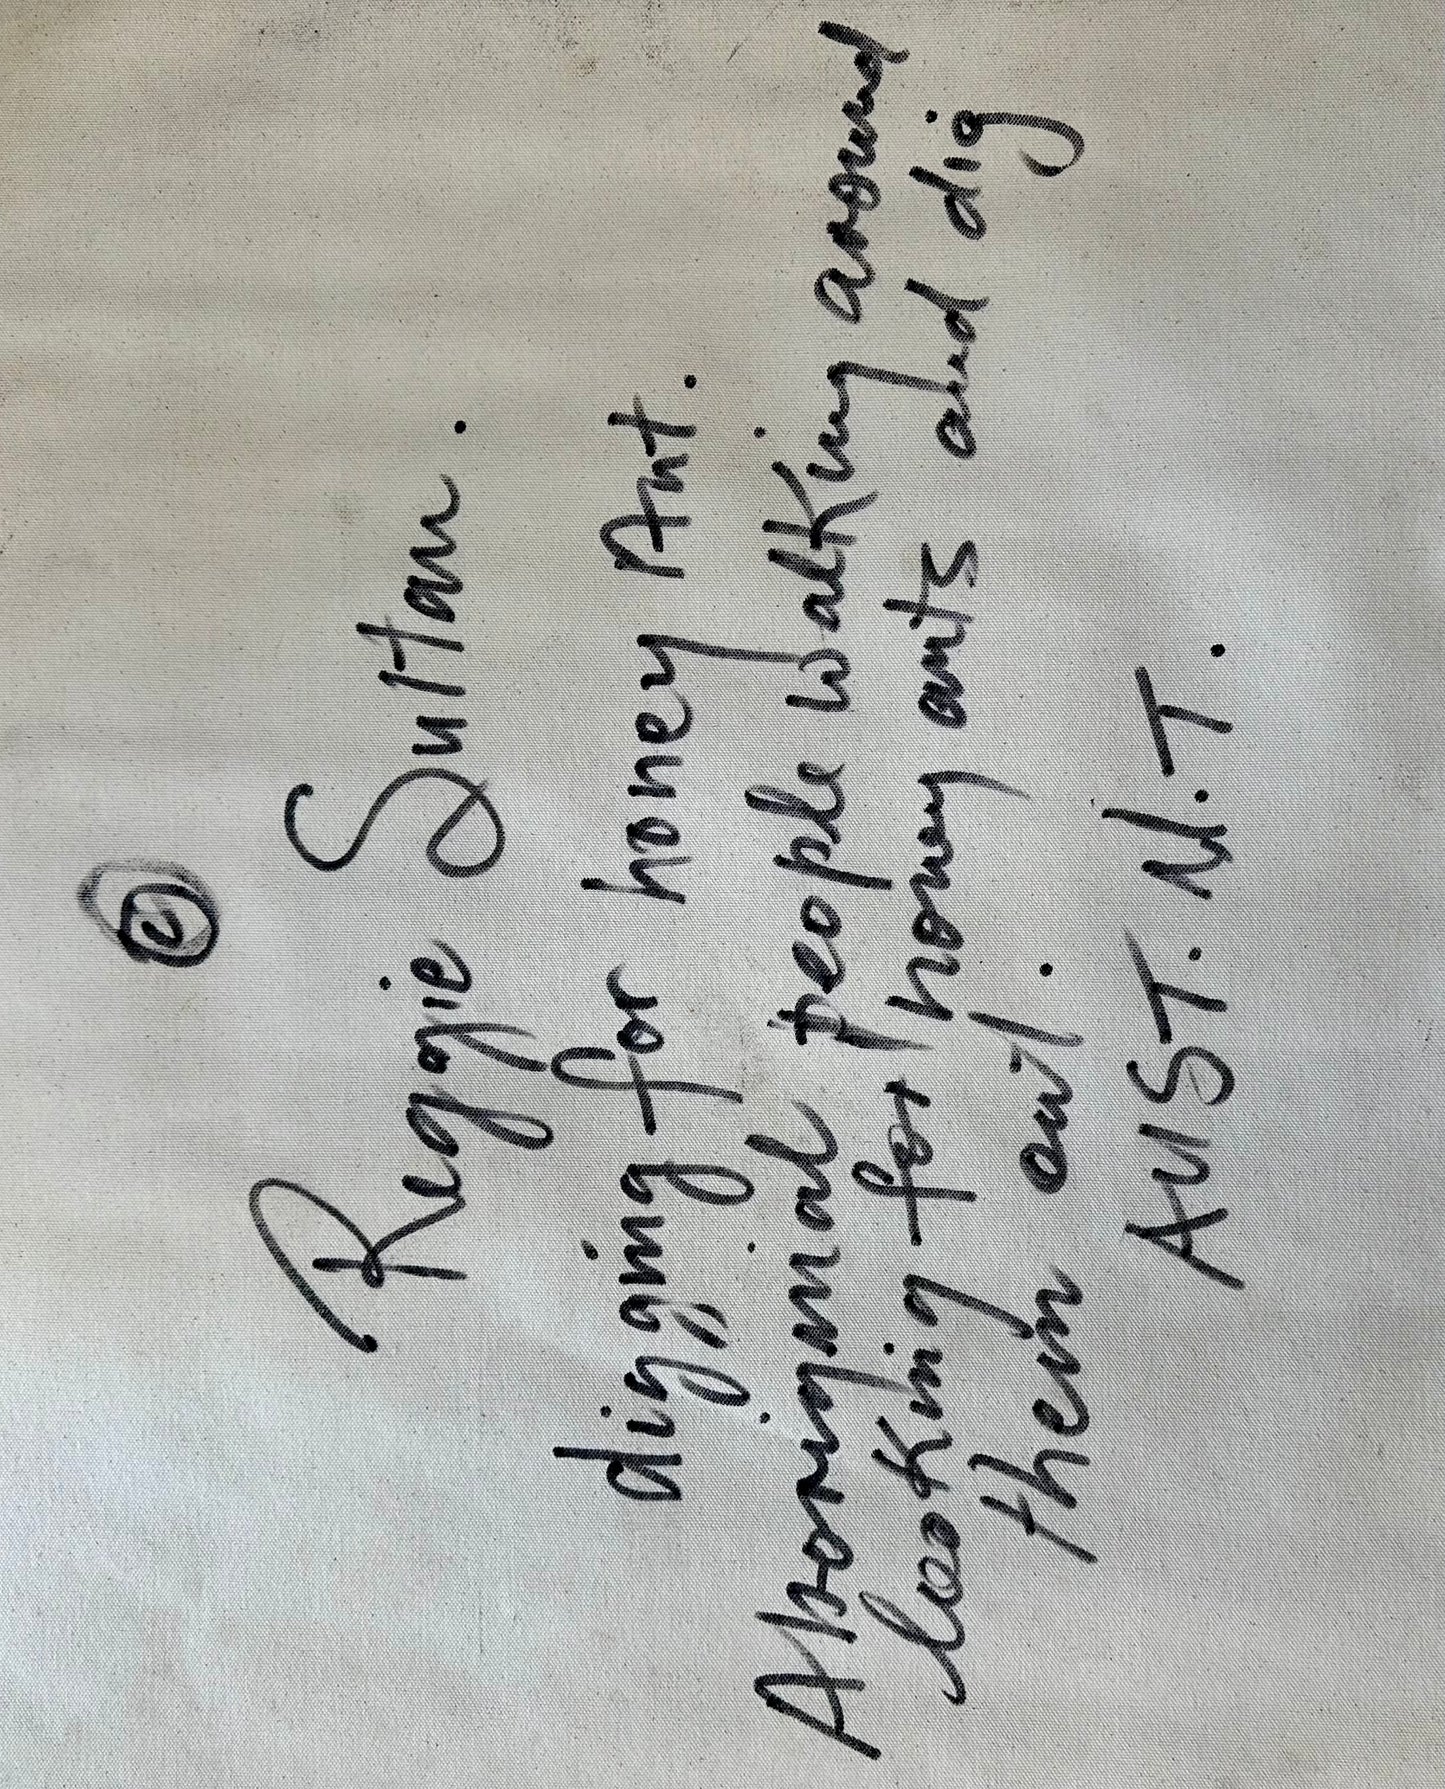 ©
Reggie Sultan.
digging for honey Ant.
Aboriginal people walking around
looking for honey ants and dig
them out.
AUST. N.T.